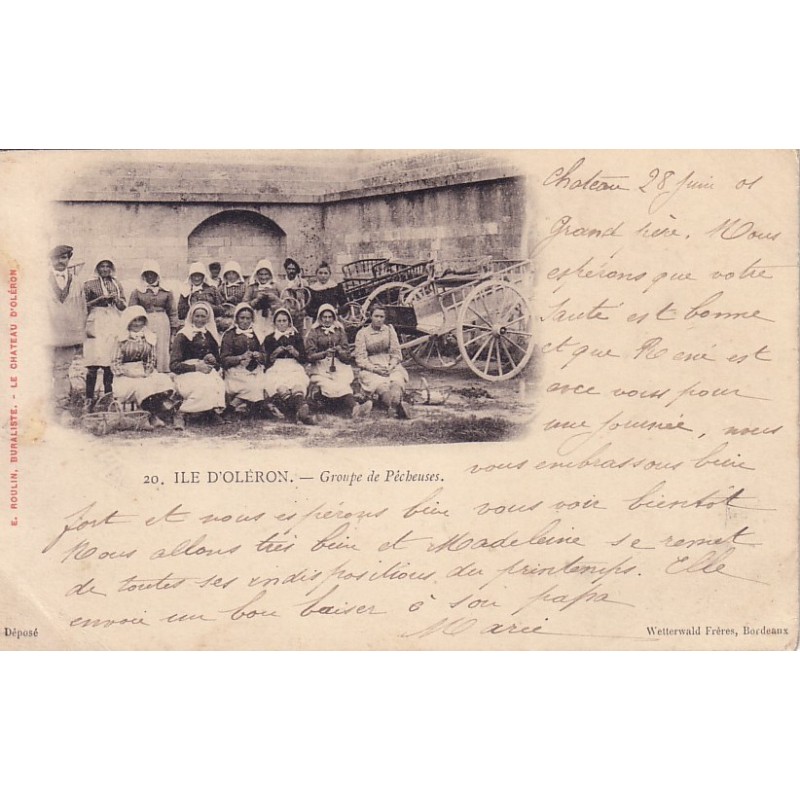 Chateau 28 juin 01
Grand père. Nous
espérons que votre
Santé est bonne
et que René est
avec vous pour
une journée, nous
vous embrassons bien
fort et nous espérons bien vous voir bientôt
Nous allons très bien et Madeleine se remet
de toutes ses indispositions du printemps. Elle
envoie un bon baiser à son papa
Marie
20. ILE D'OLÉRON. — Groupe de Pêcheuses.
E. ROULIN, BURALISTE. - LE CHATEAU D'OLÉRON
Déposé
Wetterwald Frères, Bordeaux